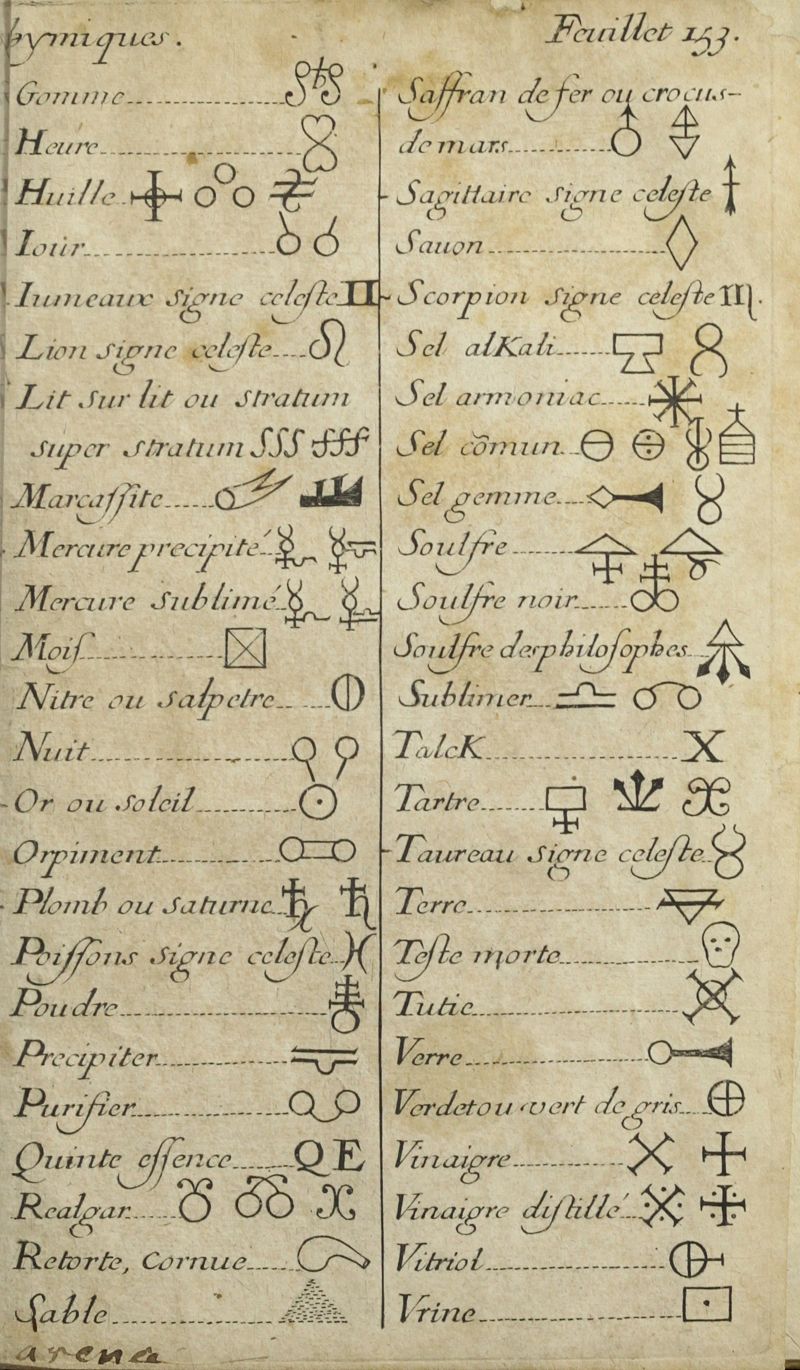 hymiques.
Feuillet 153.
Gomme
Heure
Huille
Iour
Iumeaux signe celeste
Lion signe celeste
Lit sur lit ou stratum
super stratum SSS fff
Marcassite
Mercure precipité
Mercure sublimé
Mois
Nitre ou salpetre
Nuit
Or ou soleil
Orpiment
Plomb ou saturne
Poissons signe celeste
Poudre
Precipiter
Purifier
Quinte essence QE
Realgar
Retorte, Cornue
Sable
arena
Saffran de fer ou crocus-
de mars
Sagittaire signe celeste
Sauon
Scorpion signe celeste
Sel alKali
Sel armoniac
Sel cõmun
Sel gemme
Soulfre
Soulfre noir
Soulfre des philosophes
Sublimer
TalcK X
Tartre
Taureau signe celeste
Terre
Teste morte
Tutie
Verre
Verdet ou vert de gris
Vinaigre
Vinaigre distillé
Vitriol
Vrine